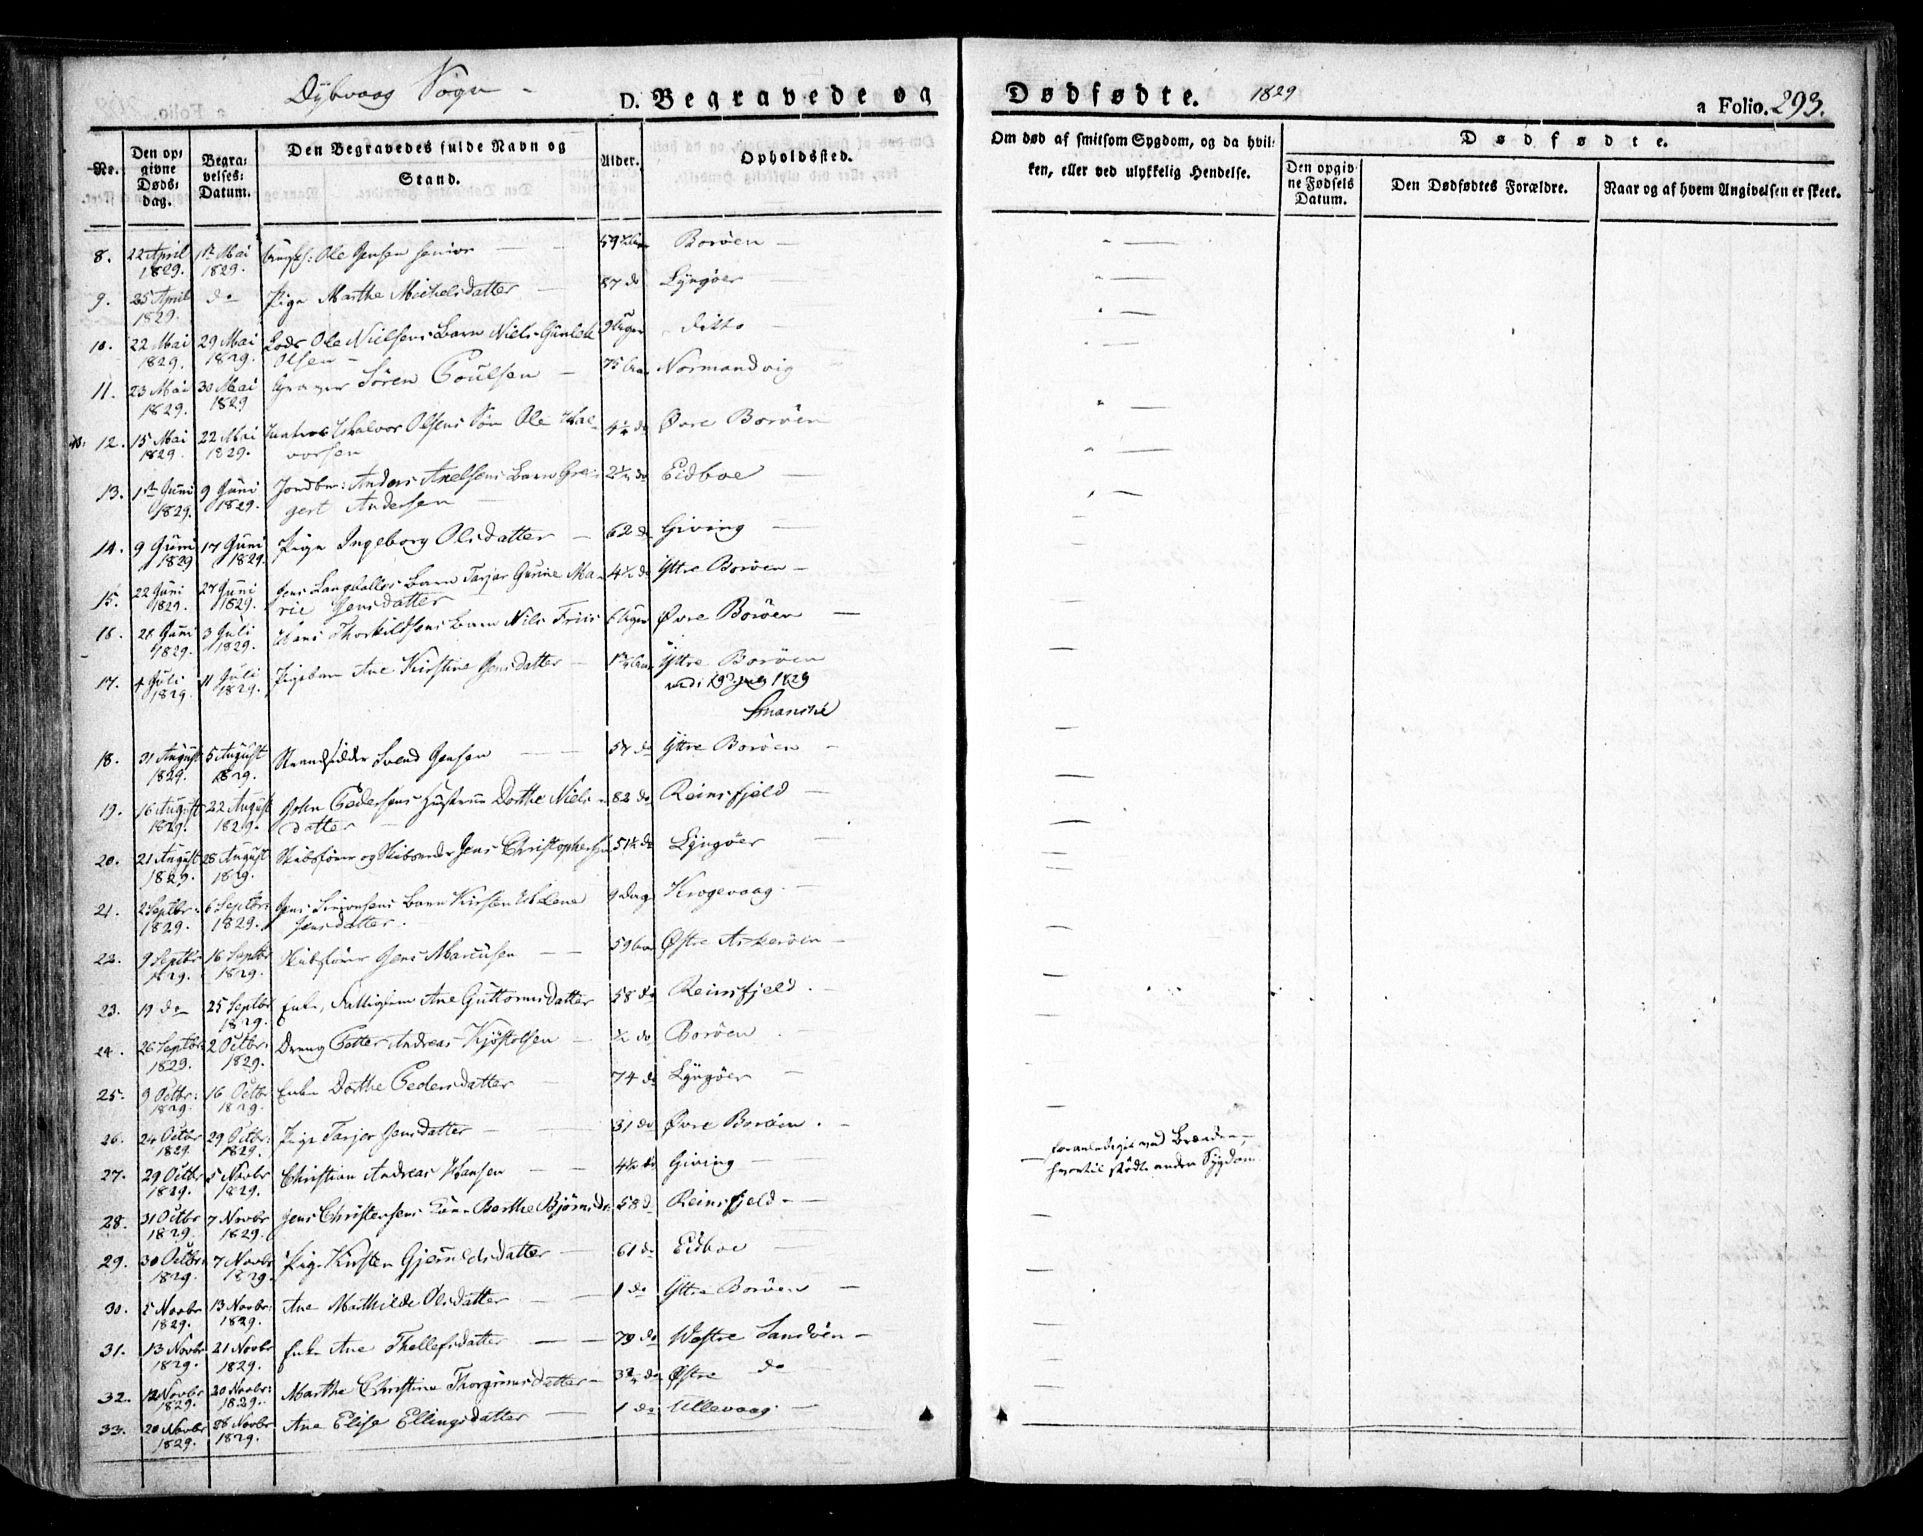 Dybvaag Sogn -
D. Begravede og Dødfødte. 1829
a Folio. 293.
No. Den opgivne Dødsdag. Begravelses: Datum. Den Begravedes fulde Navn og Stand. Alder. Opholdssted.
Om død af smitsom Sygdom, og da hvilken, eller ved ulykkelig Hendelse. Dødfødte. Den opgivne Fødsels Datum. Den Dødfødtes Forældre. Naar og af hvem Angivelsen er skeet.
8. 22 April 1829. 1ste Mai 1829. Ole Jensen senior 59 Borøen
9. 25 April 1829. do Pige Marthe Michelsdatter 87 do Lyngøer
10. 22 Mai 1829. 29 Mai 1829. Lods Ole Nielsens Barn Niels Olsen 9 Uger Ditto
11. 23 Mai 1829. 30 Mai 1829 Søren Poulsen 75 Normandvig
12. 15 Mai 1829. 22 Mai 1829. Halvor Olsens Søn Ole Halvorsen 4 1/4 do Øvre Borøen
13. 1ste Juni 1829. 9 Juni 1829. Jordbr: Anders Axelsens Barn Gregert Andersen 2 1/4 do Eidboe
14. 9 Juni 1829 17 Juni 1829. Pige Ingeborg Olsdatter 62 do Giving
15. 22 Juni 1829. 27 Juni 1829. Jens Barn Tarjer Gurine Marie Jensdatter 4 1/2 do Yttre Borøen
16. 28 Juni 1829. 3 Juli 1829. Hans Thorkildsens Barn Nils Friis 6 Uger Øvre Borøen
17. 4 Juli 1829. 11 Juli 1829. Pigebarn Ane Kirstine Jensdatter Yttre Borøen
1829
18. 31 August 1829. 5 August 1829. Strandsidder Svend Jensen 57 do Yttre Borøen
19. 16 August 1829. 22 August 1829. John Pedersens Hustrue Dorthe Nielsdatter 82 do Reinsfjeld
20. 21 August 1829. 28 August 1829. Skibsfører og Jens Christophersen 51 1/2 do Lyngøer
21. 2 Septbr: 1829. 6 Septbr: 1829. Jens Simonsens Barn Kirsten Helene Jensdatter. 9 Dage Krogevaag.
22. 9 Septbr 1829. 16 Septbr 1829. Skibsfører Jens Marcusen 59 Østre Askerøen
23. 19 do 25 Septbr 1829. Enke, Fattiglem Ane Guttormsdatter 58 do Reinsfjeld.
24. 26 Septbr: 1829. 2 Octbr: 1829. Dreng Petter Andreas Kjøstolsen 1/2 do Borøen
25. 9 Octbr: 1829. 16 Octbr: 1829. Enke Dorthe Pedersdatter 74 do Lyngøer
26. 24 Octbr 1829. 29 Octbr: 1829. Pige Tarjer Jensdatter 31 do Øvre Borøen.
27. 29 Octbr 1829. 5 Novbr 1829. Christian Andreas Hansen 4 1/2 do Giving foranlediget ved Brænden, hvortil stødte anden Sygdom
28. 31 Octbr 1829. 7 Novbr 1829. Jens Christensens Kone Berthe Bjørnsdr 58 do Reinsfjeld
29. 30 Octbr: 1829. 7 Novbr 1829. Pige Kirsten Gjeruldsdatter 61 do Eidboe
30. 5 Novbr 1829. 13 Novbr: 1829. Ane Mathilde Olsdatter 1 do Yttre Borøen
31. 13 Novbr 1829. 21 Novbr 1829. Enke Ane Thellefsdatter 79 do Westre Sandøen
32. 12 Novbr 1829. 20 Novbr: 1829. Marthe Christine Thorgrimsdatter do Østre do
33. 20 Novbr 1829. 28 Novbr 1829. Ane Elise Ellingsdatter 1 do Ullevaag.